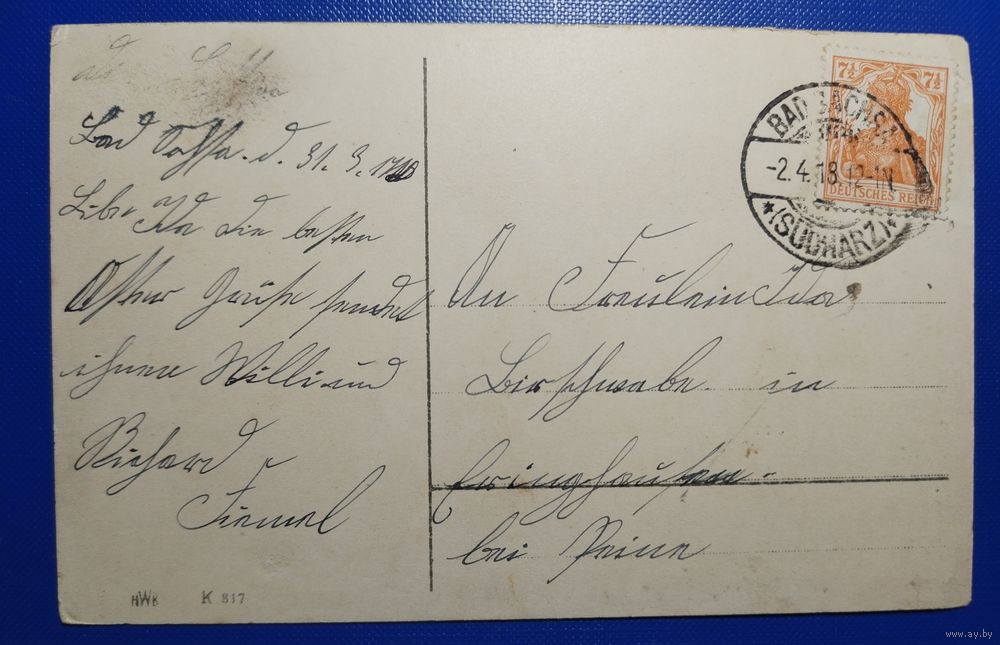 Bad Sachsa. d. 31. 3. 1918
Libe Ida die besten
Oster Grüße sendet
ihnen Willi und
Richard
HWB K 317
7½ 7½
DEUTSCHES REICH
BAD SACHSA
-2.4.18. 12-1N
*(SÜDHARZ)*
An Freulein Ida
in
bei Peine
www.ay.by